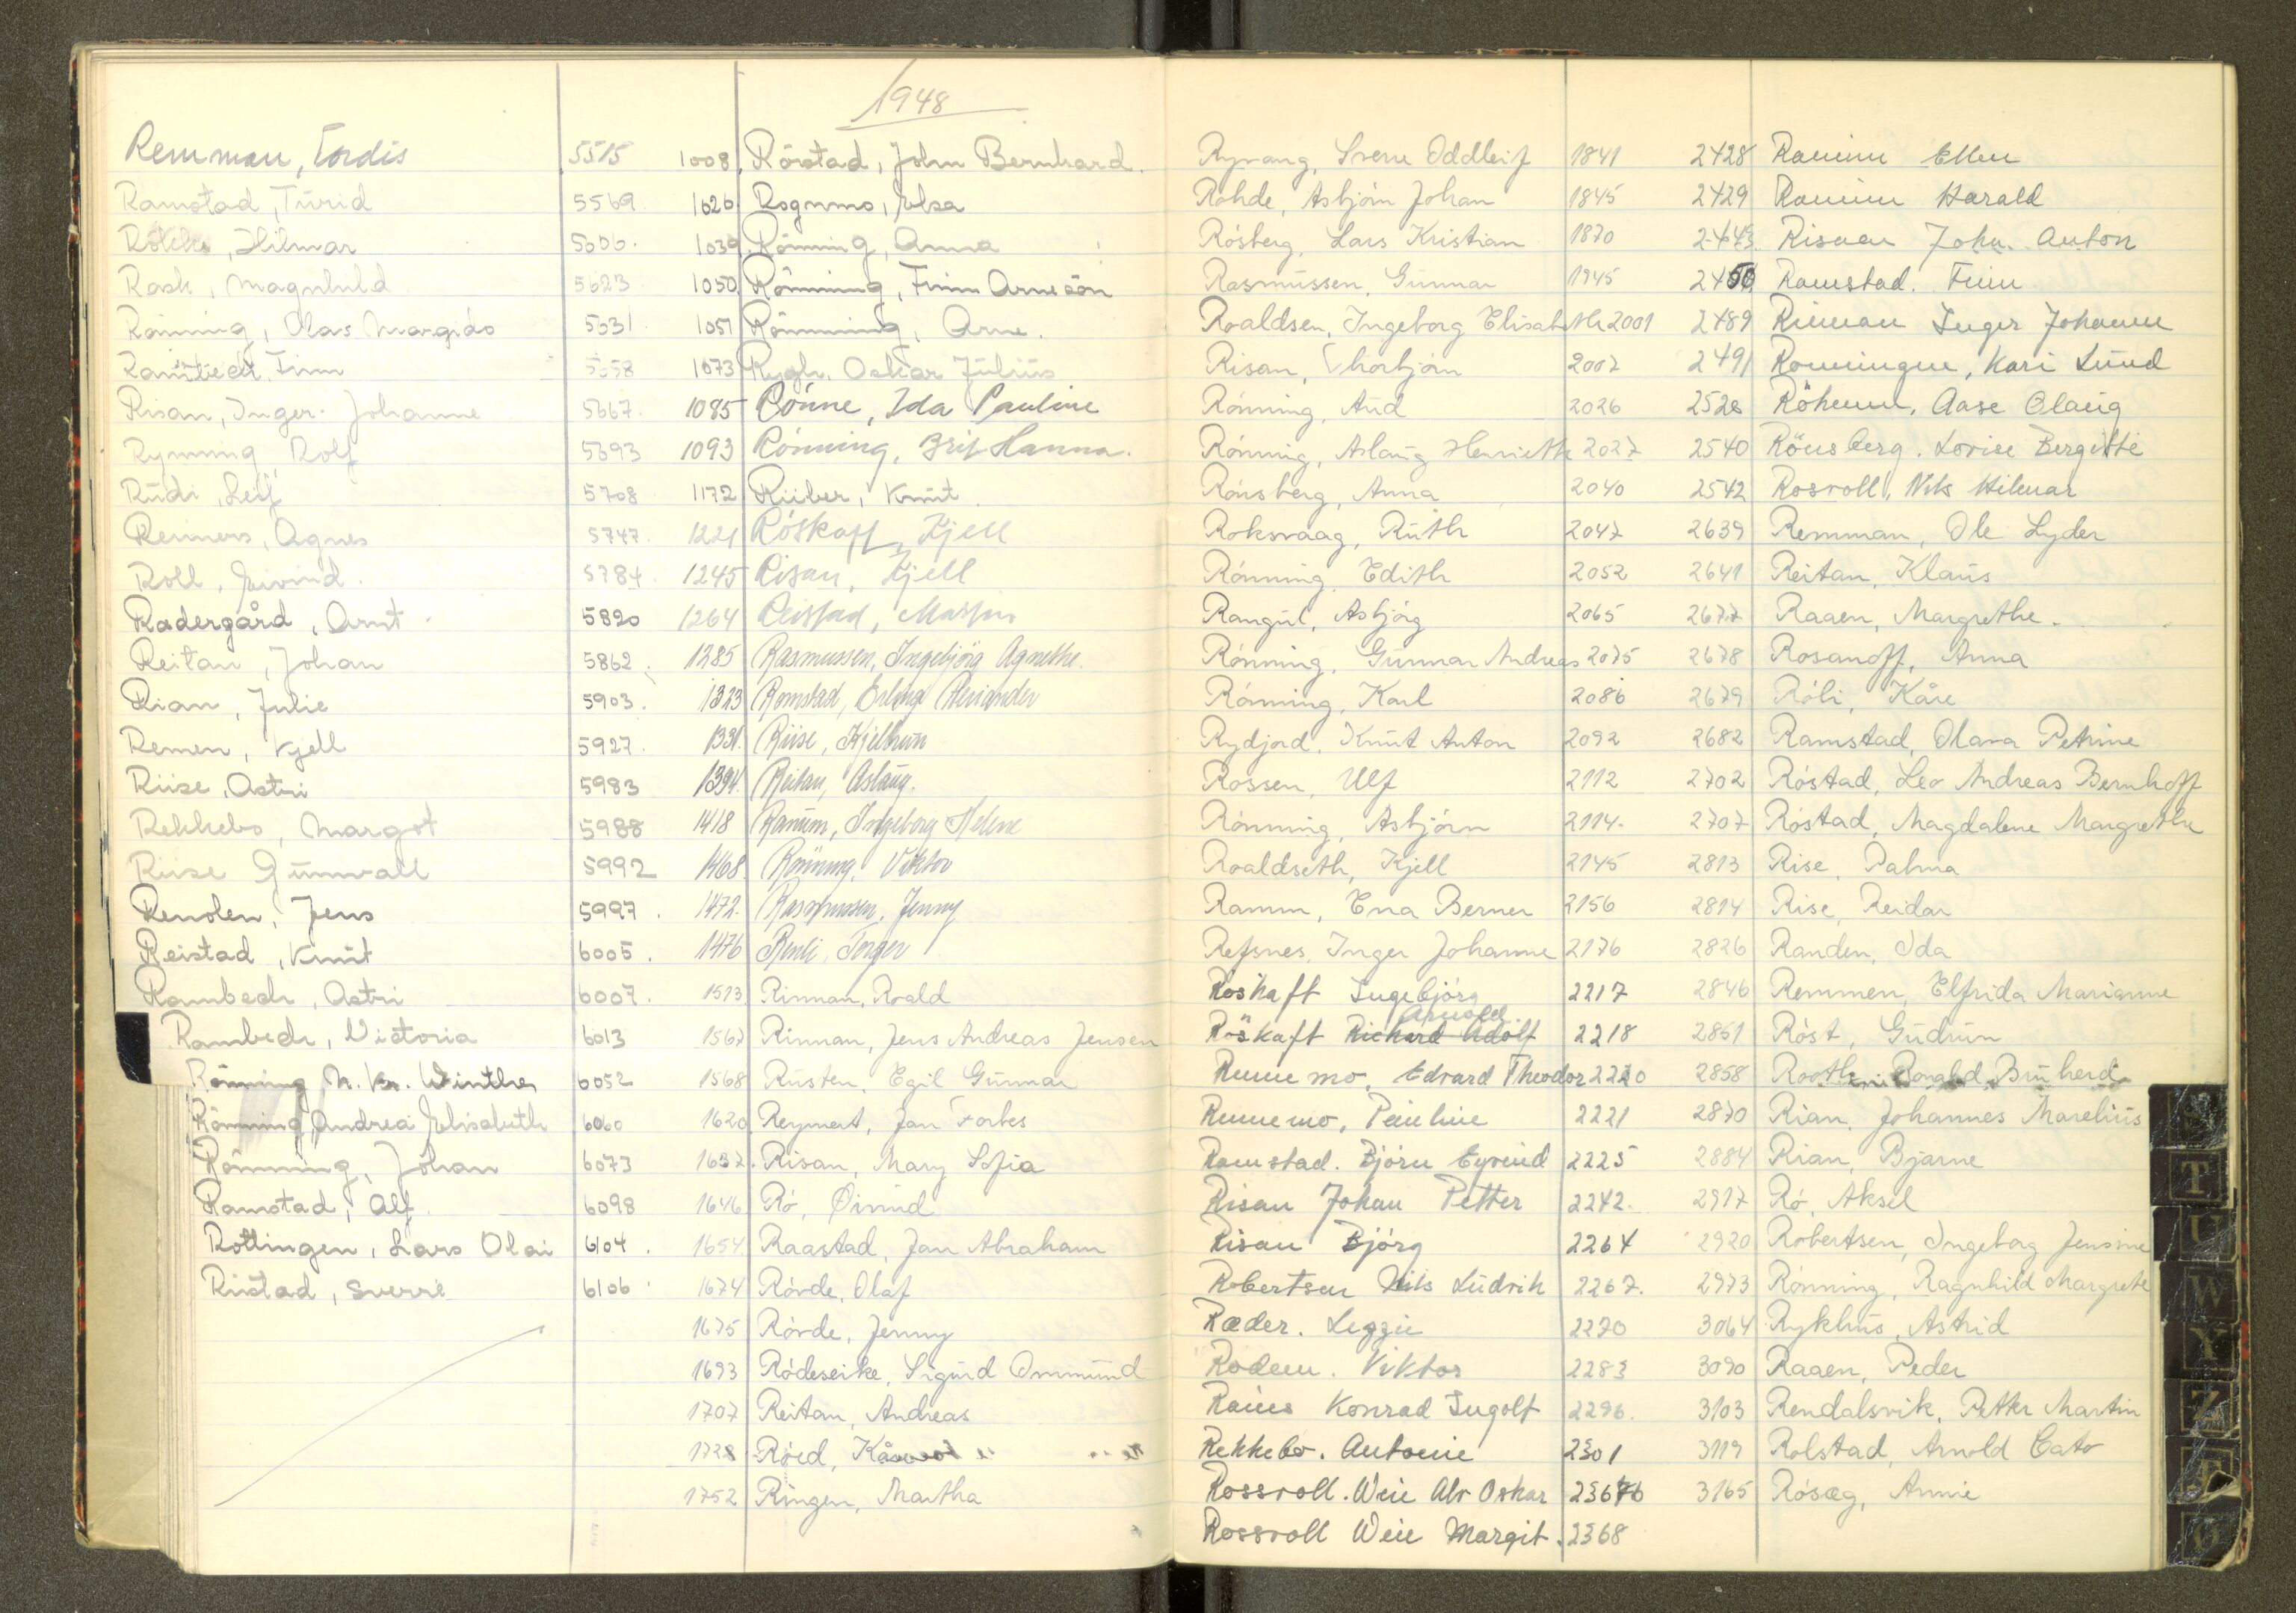 1948
Remman, Tordis 5515
Ramstad, Turid 5569
Rökke, Hilmar 5606.
Rask, Magnhild 5623
Rönning, Olav Margido 5631
Finn 5658
Risan, Inger Johanne 5667.
Rynning Rolf 5693
Rudi, Leif 5708
Reiners, Agnes 5747.
Roll, Eivind. 5784.
Radergård, Arnt. 5820
Reitan, Johan 5862.
Rian, Julie 5903.
Remen, Kjell 5927.
Riise, Astri 5983
Rekkebo, Margot 5988
Riise Gunvall 5992
Renolen, Jens 5997.
Reistad, Knut 6005.
Rambech, Astri 6007.
Rambech, Victoria 6013
Rönning N. Kr. Winther 6052
Rönning Andrea Elisabeth 6060
Rönning, Johan 6073
Ramstad, Alf. 6098
Rottingen, Lars Olai 6104.
Ristad, Sverre 6106.
1008 Röstad, John Bernhard.
1026 Rognmo, Elsa
1039 Rönning, Anna
1050 Rönning, Finn Arneson
1051 Rönning, Arne.
1073 Rygh, Oskar Julius
1085 Rönne, Ida Pauline
1093 Rönning, Brit Hanna.
1172 Riiber, Knut.
1221 Röskaft, Kjell
1245 Risan, Kjell
1264 Reistad,
1285 Rasmussen, Ingebjörg Agnethe.
1323 Ramstad, Erling Alexander
1331. Riise, Kjellrun
1394. Reitan, Aslaug.
1418 Ranum, Ingeborg Helene
1468. Rönning. Viktor
1472. Rasmussen, Jenny
1476 Torger
1513 Rinnan, Roald
1567 Rinnan, Jens Andreas Jensen
1568 Rusten, Egil Gunnar
1620 Reymert, Jan Forbes
1637. Risan, Mary Sofia
1646 Rö, Øivind
1654 Raastad, Jan Abraham
1674 Rövde, Olaf
1675 Rövde, Jenny
1693 Rödeseike, Sigurd Ommund
1707 Reitan, Andreas
1728 Röed,
1752 Ringen, Martha
Ryvang, Sverre Oddleif 1841
Rohde, Asbjörn Johan 1845
Rösberg, Lars Kristian 1870
Rasmussen, Gunnar 1945
Roaldsen, Ingeborg Elisabeth 2001
Risan, Thorbjörn 2007
Rönning, Aud 2026
Rönning, Aslaug Henriette 2027
Rönsberg, Anna 2040
Roksvaag, Ruth 2047
Rönning, Edith 2052
Rangul, Asbjörg 2065
Rönning, Gunnar Andreas 2075
Rönning, Karl 2086
Rydjord, Knut Anton 2092
Rossen, Ulf 2112
Rönning, Asbjörn 2114.
Roaldseth, Kjell 2145
Ramm, Ena Berner 2156
Refsnes, Inger Johanne 2176
Röskaft Ingebjörg 2217
Röskaft Richard Adolf 2218
Rennemo, Edvard Theodor 2220
Rennemo, Pauline 2221
Ramstad. Björn Eyvind 2225
Risan Johan Petter 2242.
Risan Björg 2264
Robertsen Nils Ludvik 2267.
Ræder. Lizzie 2270
Rodem. Viktor 2283
Konrad Ingolf 2296.
Rekkebo. Antonie 2301
Rossvoll. Weie Alv Oskar
Rossvoll Weie Margit. 2368
2428 Ranum Ellen
2429 Ranum Harald
2443 Risan John. Anton
2450 Ramstad. Finn
2489 Rinnan Inger Johanne
2491 Romningen, Kari Lund
2528 Aase Olaug
2540 Rönsberg. Lovise Bergitte
2542 Rosvoll, Nils Hilmar
2639 Remman, Ole Lyder
2641 Reitan, Klaus
2677 Raaen, Margrethe.
2678 Rosanoff, Anna
2679 Röli, Kåre
2682 Ramstad, Olava Petrine
2702 Röstad, Leo Andreas Bernhoff
2707 Röstad, Magdalene Margrethe
2813 Rise, Palma
2814 Rise, Reidar
2826 Randen, Ida
2846 Remmen, Elfrida Marianne
2851 Röst, Gudrun
2858
2870 Rian, Johannes Marelius
2884 Rian, Bjarne
2917 Rö, Aksel
2920 Robertsen, Ingeborg Jensine
2973 Rönning, Ragnhild Margrete
3064 Rykhus, Astrid
3090 Raaen, Peder
3103 Rendalsvik, Petter Martin
3119 Rolstad, Arnold Cato
3165 Rösæg, Annie
T
U
W
Y
Z